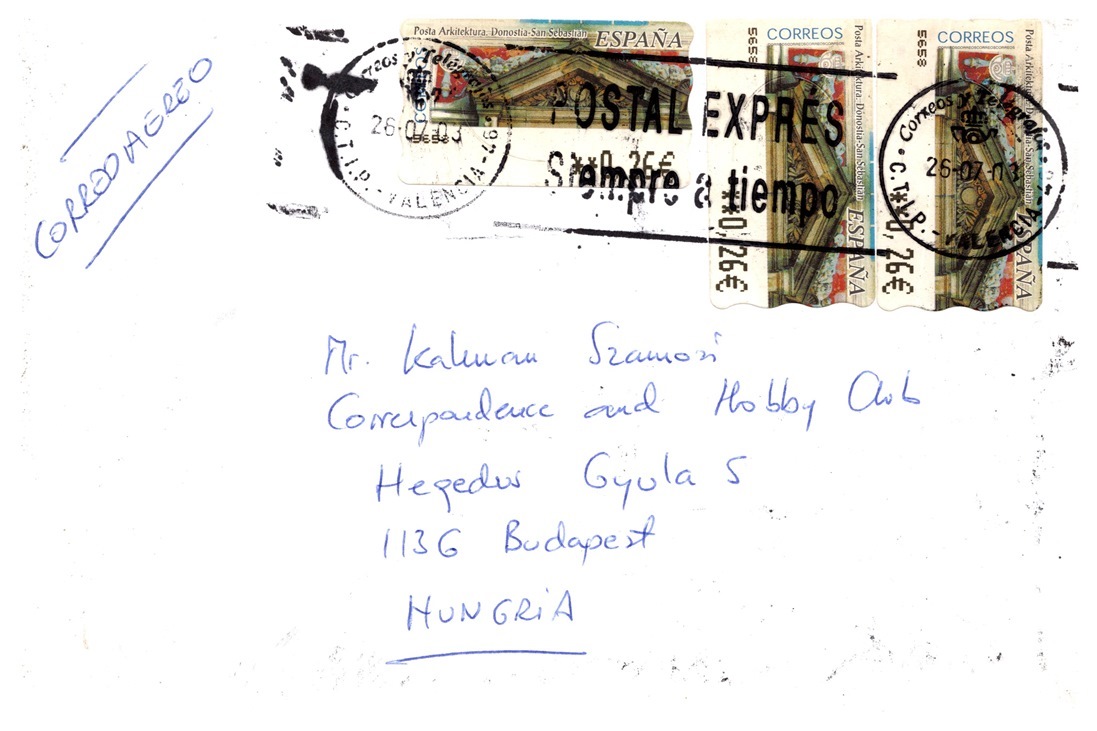 CORREO AEREO
Posta Arkitektura. Donostia-San Sebastián
ESPAÑA
5658
**0,26€
CORREOS
5658
Posta Arkitektura. Donostia-San Sebastián
ESPAÑA
**0,26€
CORREOS
5658
Posta Arkitektura. Donostia-San Sebastián
ESPAÑA
**0,26€
Correos y Telégrafos
26-07-03
C.T.I.P. - VALENCIA -
POSTAL EXPRES
Siempre a tiempo
Correos y Telégrafos
26-07-03
C.T.I.P. - VALENCIA
Mr. Kalman Szamosi
Correspondence and Hobby Club
Hegedus Gyula 5
1136 Budapest
HUNGRIA